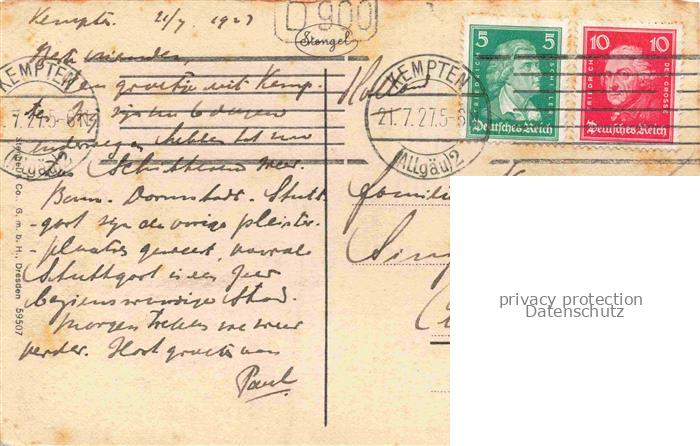 Kempten 21/7 1927
Beste vrienden,
Een groeten uit Kemp-
ten. Wij zijn nu 6 dagen
onderweg en hebben tot nu
Schitterend weer.
Bonn. Darmstadt. Stutt-
gart zijn de vorige pleister-
plaatsen geweest, vooral
Stuttgart is een zeer
bezienswaardige Stad.
Morgen trekken we weer
verder. Hart. groeten van
Paul
D 900
Stengel
KEMPTEN
7.27.5-6N
(Allgäu)2
KEMPTEN
21.7.27.5-6N
(Allgäu)2
5 5
FRIEDRICH SCHILLER
Deutsches Reich
10 10
FRIEDRICH DER GROSSE
Deutsches Reich
Stengel & Co., G. m. b. H., Dresden 59507
Holland
familie
Sing
privacy protection
Datenschutz